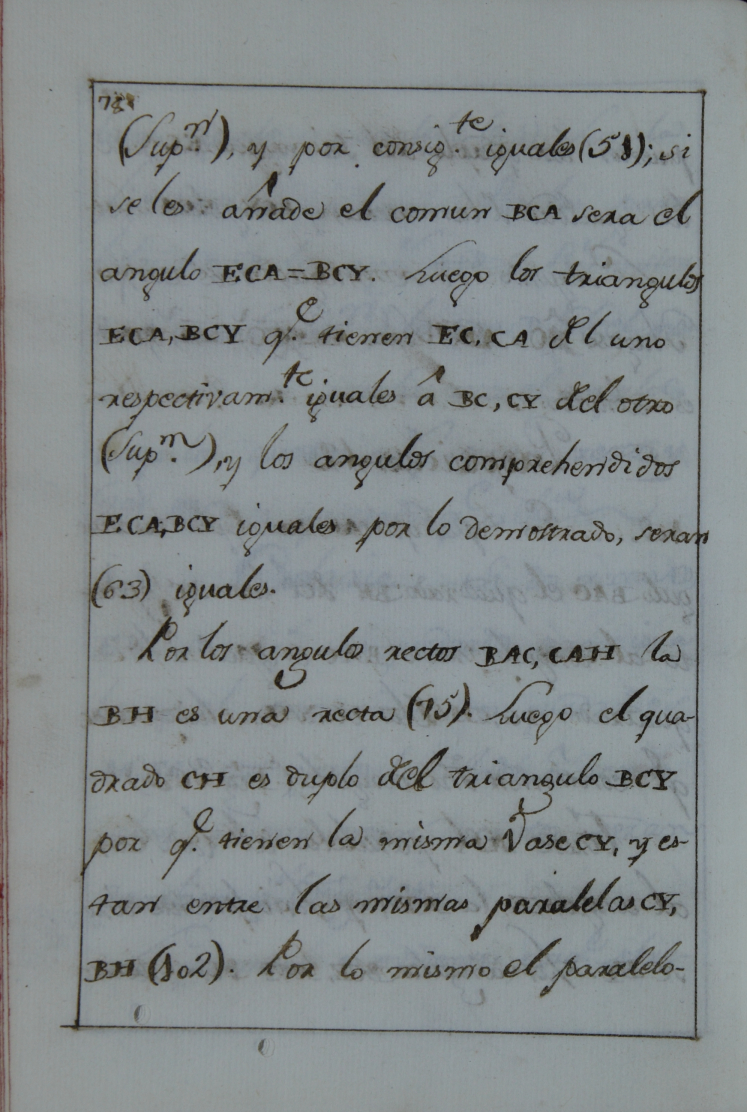 78
(Sup.n), y por consig.te iguales (51); si
se les añade el comun BCA sera el
angulo ECA=BCY. Luego los triangulos
ECA, BCY q.e tienen EC, CA del uno
respectivam.te iguales â BC, CY del otro
(Sup.n), y los angulos comprehendidos
ECA, BCY iguales por lo demostrado, seran
(63) iguales.
Por los angulos rectos BAC, CAH la
BH es una recta (15). Luego el qua-
drado CH es duplo del triangulo BCY
por q.e tienen la misma Vase CY, y es-
tan entre las mismas paralelas CY,
BH (102). Por lo mismo el paralelo-